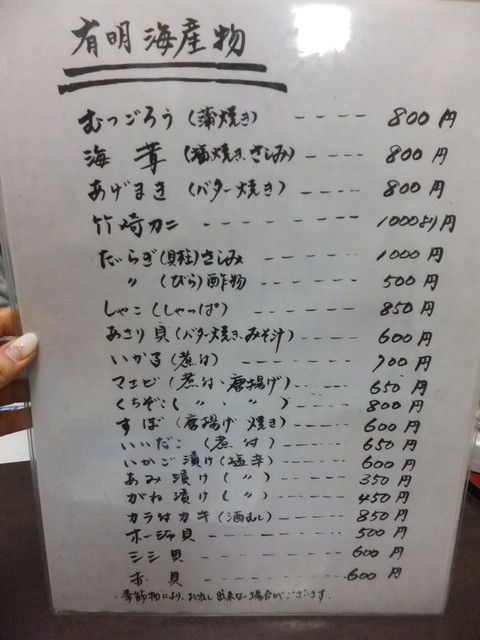 有明海産物
むつごろう(蒲焼き) ---- 800円
海茸 (粕焼き、さしみ) ---- 800円
あげまき (バター焼き) ---- 800円
竹崎カニ -------- 1000より円
だらぎ(貝柱)さしみ ---- 1000円
〃 (びら)酢物 ---- 500円
しゃこ (しゃっぱ) ------ 850円
あさり貝(バター焼き、みそ汁) ---- 600円
いかる (煮付) ------ 700円
マエビ (煮付・唐揚げ) ---- 650円
くちぞこ ( 〃 ・ 〃 ) ---- 800円
すぼ (唐揚げ 焼き) ---- 600円
いいだこ (煮付) ------ 650円
いかご漬け (塩辛) ------ 600円
あみ漬け ( 〃 ) ------ 350円
がね漬け ( 〃 ) ------ 450円
カラ付カキ (酒むし) ------ 850円
ホージャ貝 ------ 500円
シシ貝 -------- 600円
赤貝 -------- 600円
・季節物により、お出し出来ない場合がございます。